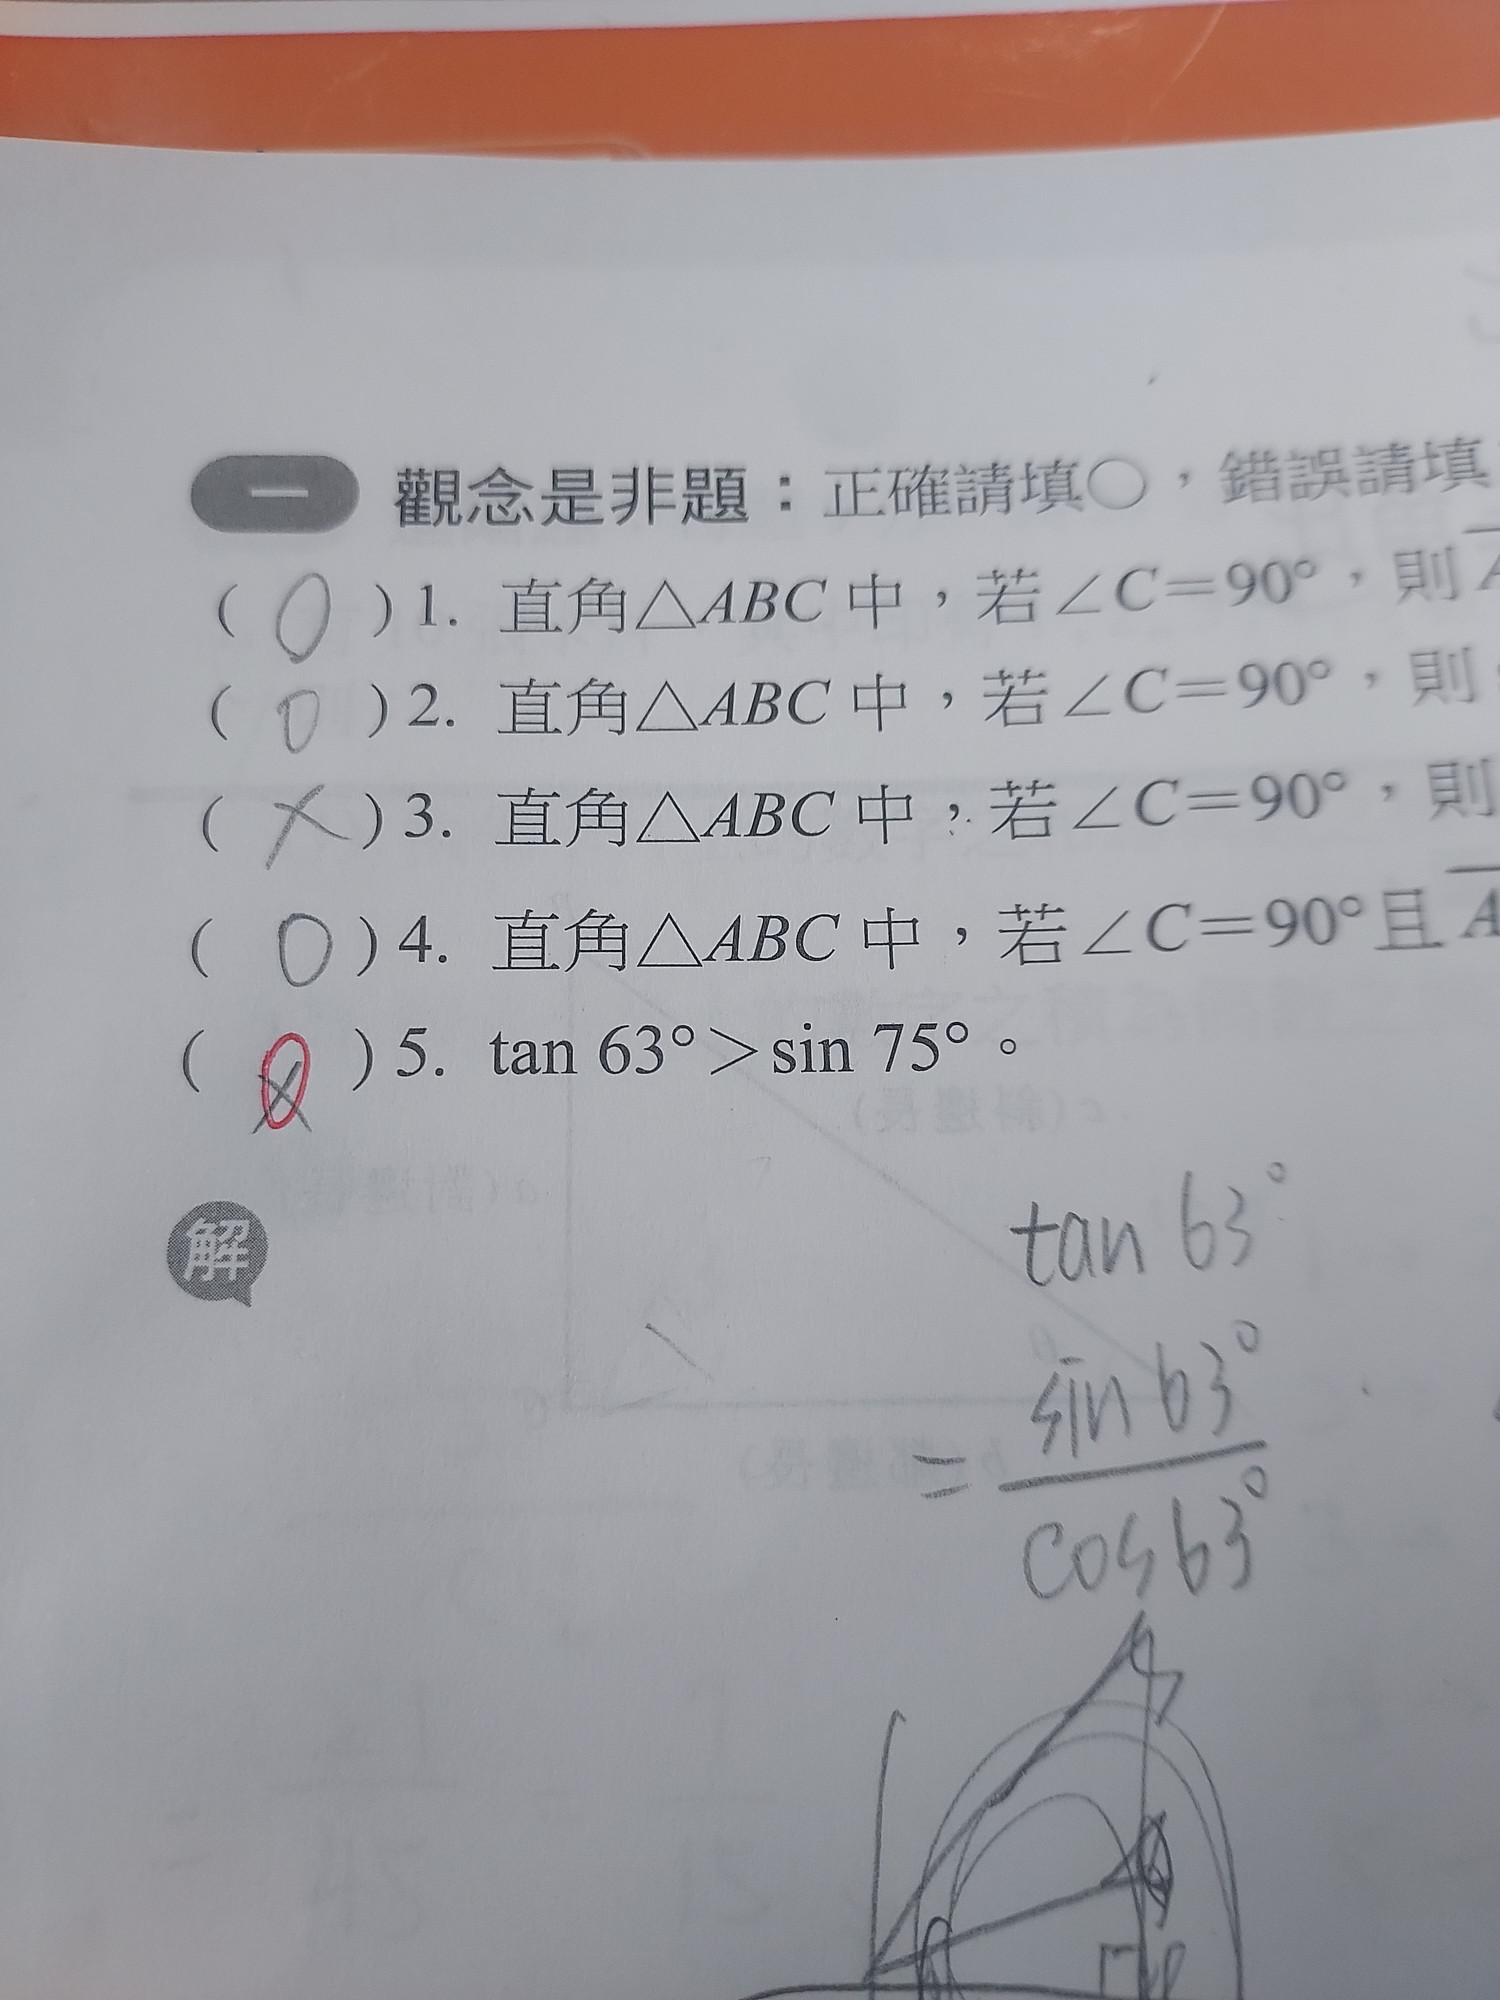 一 觀念是非題：正確請填○，錯誤請填
( O )1. 直角△ABC 中，若∠C=90°，則 A
( O )2. 直角△ABC 中，若∠C=90°，則
( X )3. 直角△ABC 中，若∠C=90°，則
( O )4. 直角△ABC 中，若∠C=90°且 A
( O )5. tan 63°>sin 75°。
解
tan 63°
= sin 63°
cos 63°